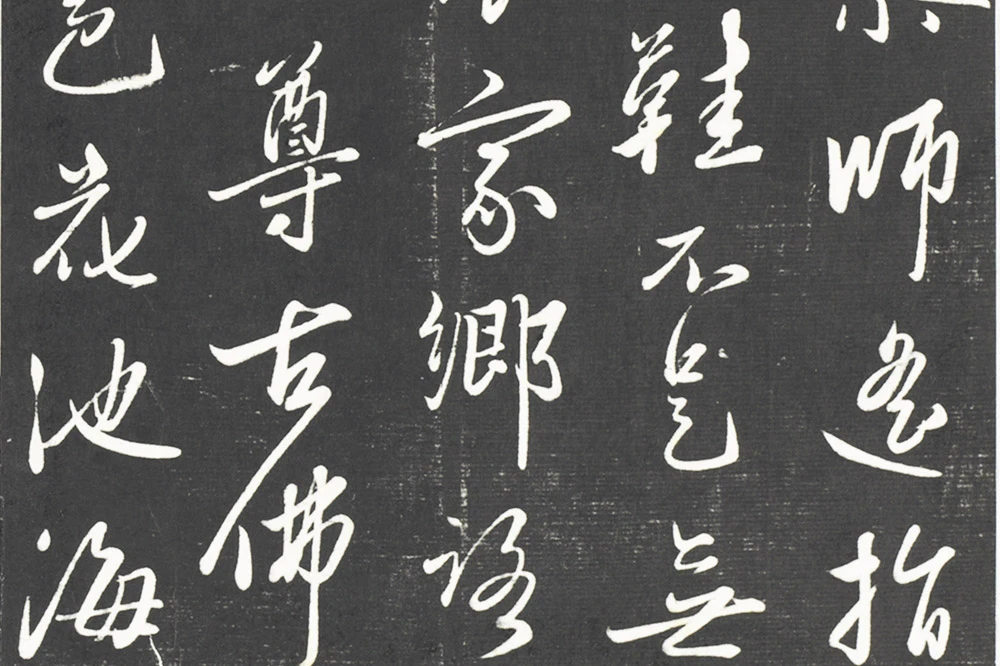 師遙指
鞋不是無
家鄉路
尊古佛
色花池海